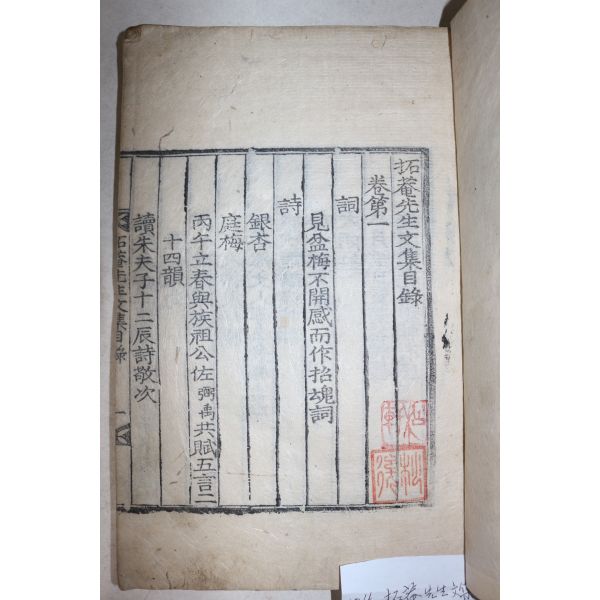 拓菴先生文集目錄
卷第一
詞
見盆梅不開感而作招魂詞
詩
銀杏
庭梅
丙午立春與族祖公佐弼禹共賦五言二
十四韻
讀朱夫子十二辰詩敬次
拓菴先生文集目錄
一
拓菴先生文